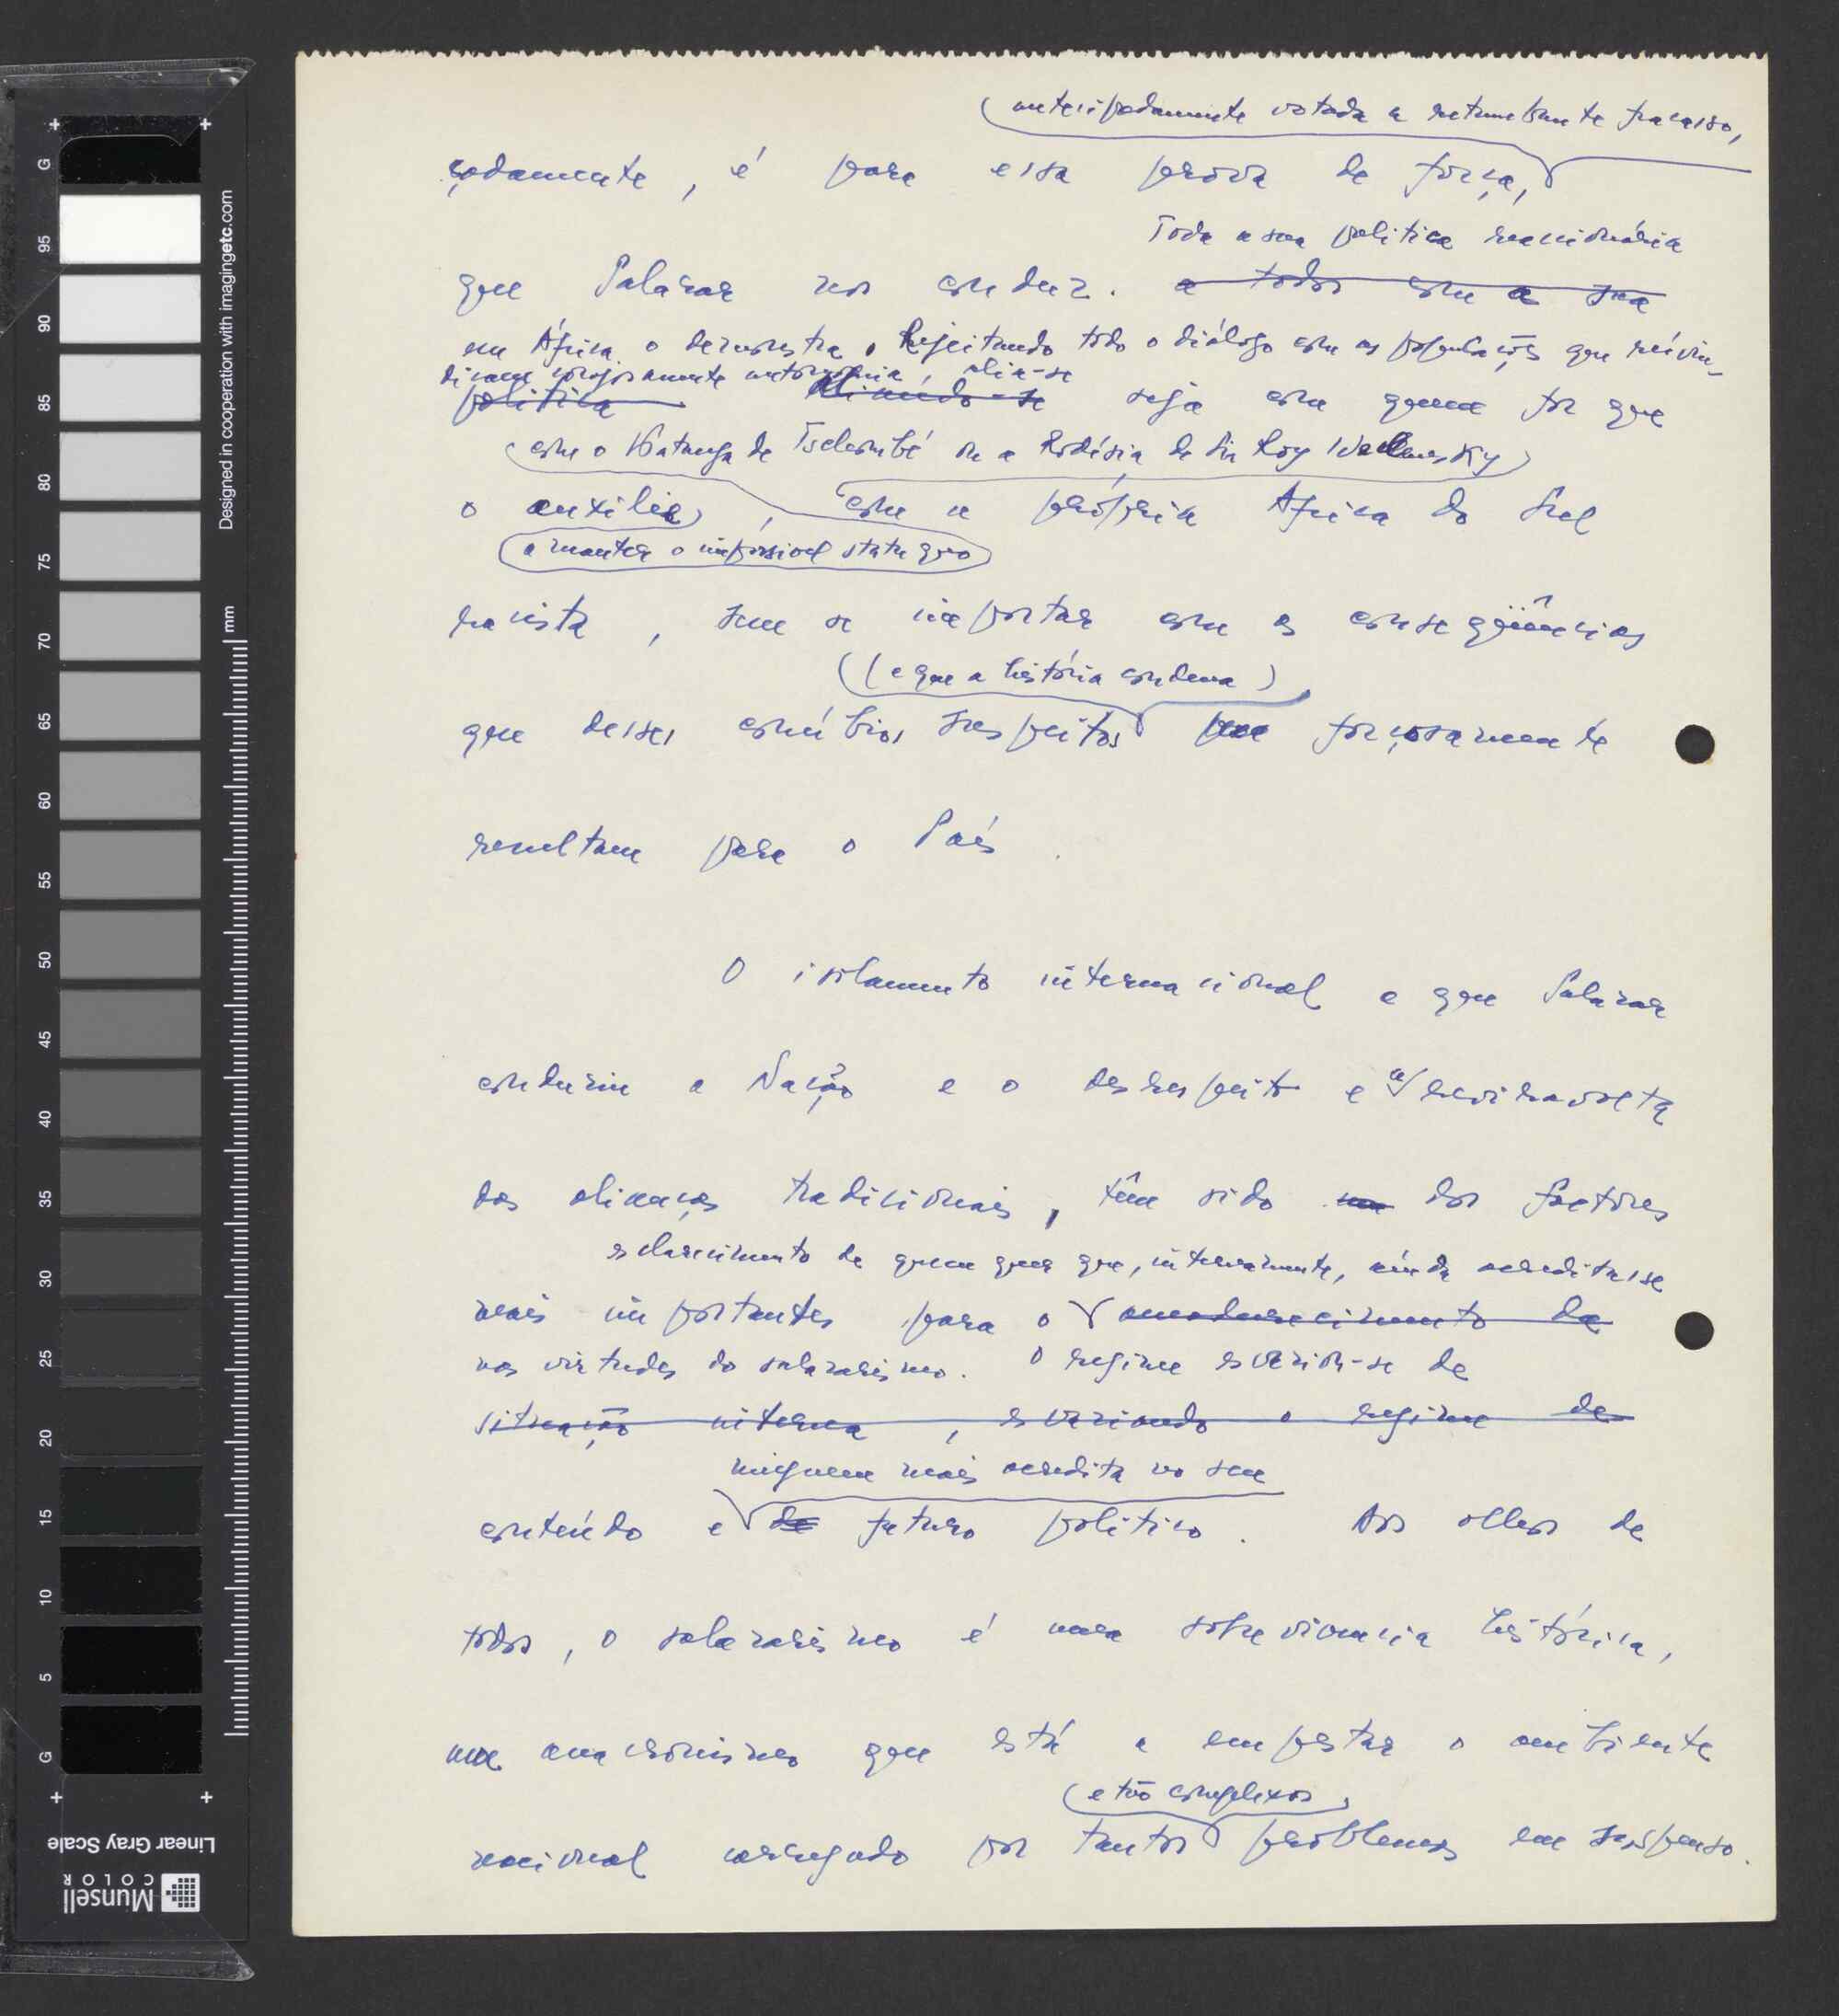 antecipadamente votada a retumbante fracasso,
çadamente, é para essa prova de força,
Toda a sua politica reaccionária
que Salazar nos conduz. a todos com a sua
em África o demonstra. Rejeitando todo o diálogo com as populações que reivin-
dicam corajosamente autonomia, alia-se
politica aliando-se seja com quem for que
com o Katanga de Tschombé ou a Rodésia de Sir Roy Wellensky
o auxilie, com a própria Africa do Sul
a manter o impossivel statu quo
racista, sem se importar com as conseqüências
(e que a história condena)
que desses conúbios suspeitos forçosamente
resultam para o País.
O isolamento internacional a que Salazar
conduziu a Nação e o desrespeito e a reviravolta
das alianças tradicionais, têm sido um dos factores
esclarecimento de quem quer que, internamente, ainda acreditasse
mais importantes para o amadurecimento da
nas virtudes do salazarismo. O regime esvaziou-se de
situação interna, esvaziando o regime de
ninguem mais acredita no seu
conteúdo e de futuro politico. Aos olhos de
todos, o salazarismo é uma sobrevivencia histórica,
um anacronismo que está a empestar o ambiente
e tão complexos
nacional carregado por tantos problemas em suspenso.
Designed in cooperation with imagingetc.com
mm
G 95 90 85 80 75 70 65 60 55 50 45 40 35 30 25 20 15 10 5 G
Linear Gray Scale
Munsell
COLOR